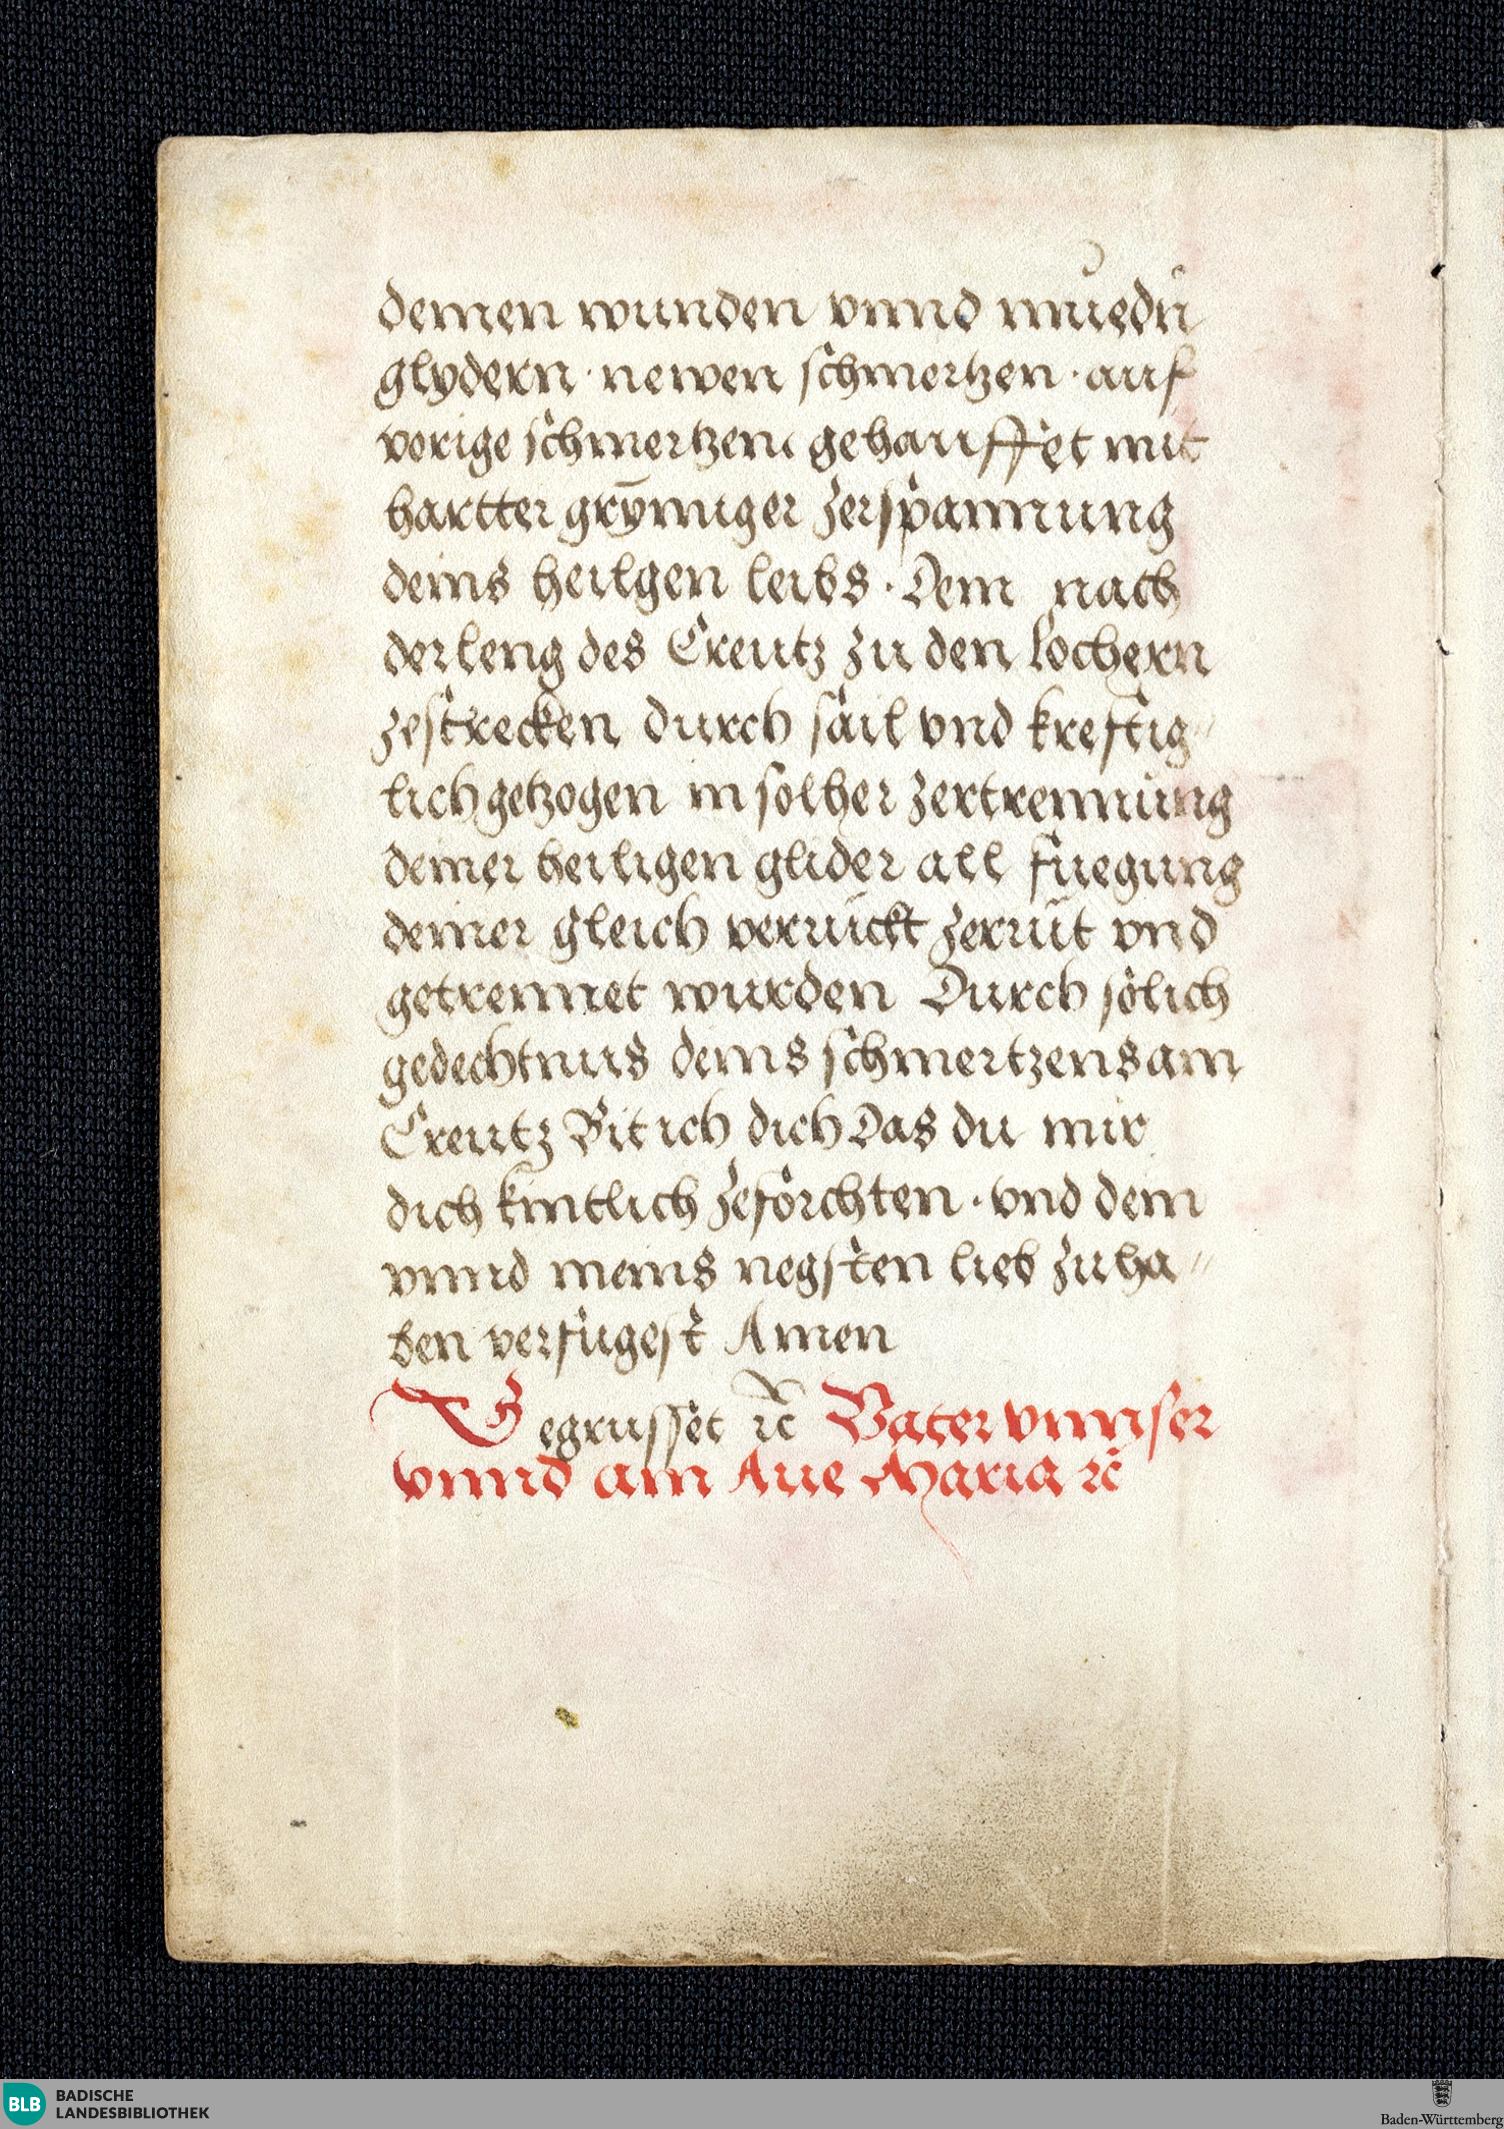 deinen wunden vnnd muedn̄
glydern · newen schmertzen · auf
vorige schmertzen gehauffet mit
hartter grȳmiger zerspannung
deins heilgen leibs · Dem nach
der leng des Creutz zu den löchern
zestrecken durch säil vnd kreftig〃
lich getzogen in solher zertrennung
deiner heiligen glider all fuegung
deiner gleich veruückt zerüt vnd
getrennet wurden Durch sölich
gedechtnus deins schmertzens am
Creutz Bit ich dich Das du mir
dich kintlich zeförchten · vnd dein
vnnd meins negsten lieb zu ha〃
ben verfügest Amen
Gegrusset ꝛc̄ Vater vnnser
vnnd ain Aue Maria ꝛc
BLB BADISCHE
LANDESBIBLIOTHEK
Baden-Württemberg